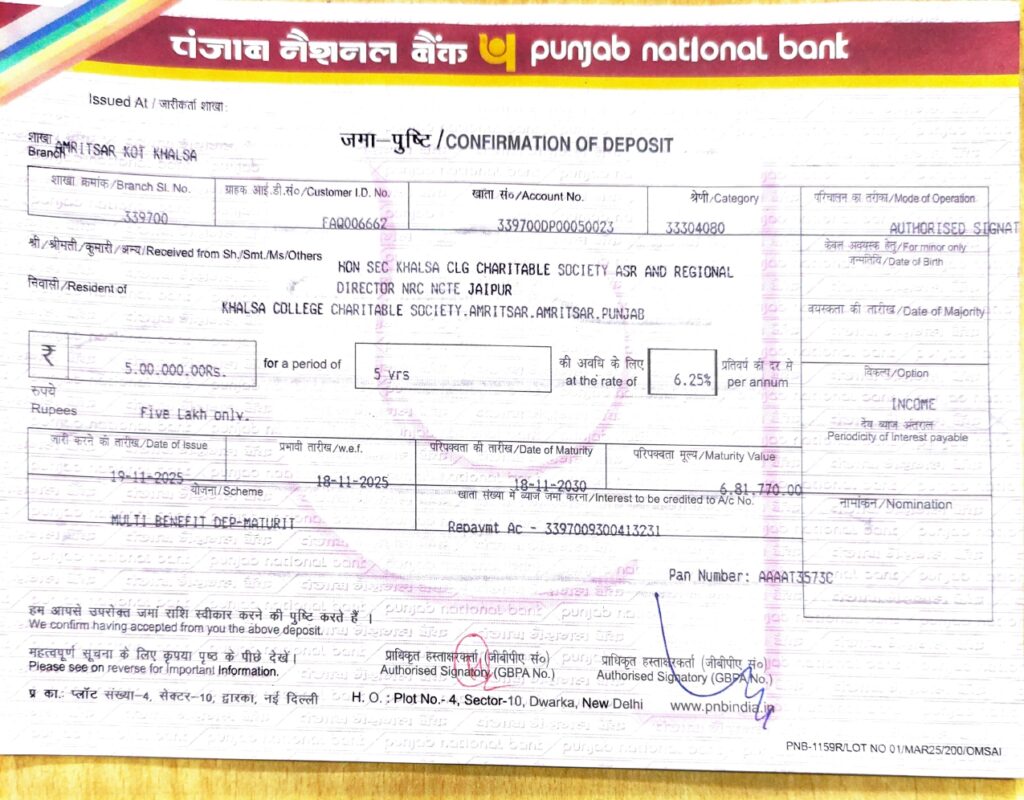 पंजाब नैशनल बैंक punjab national bank
Issued At / जारीकर्ता शाखा:
जमा-पुष्टि/CONFIRMATION OF DEPOSIT
शाखा AMRITSAR KOT KHALSA
Branch
शाखा क्रमांक/Branch Sl. No. ग्राहक आई.डी.सं०/Customer I.D. No. खाता सं०/Account No. श्रेणी/Category परिचालन का तरीका/Mode of Operation
339700 FAQ006662 339700DP00050023 33304080 AUTHORISED SIGNAT
श्री/श्रीमती/कुमारी/अन्य/Received from Sh./Smt./Ms/Others केवल अवयस्क हेतु/For minor only
जन्मतिथि/Date of Birth
HON SEC KHALSA CLG CHARITABLE SOCIETY ASR AND REGIONAL
निवासी/Resident of DIRECTOR NRC NCTE JAIPUR
KHALSA COLLEGE CHARITABLE SOCIETY.AMRITSAR.AMRITSAR.PUNJAB वयस्कता की तारीख/Date of Majority
₹ 5.00.000.00Rs. for a period of 5 yrs की अवधि के लिए at the rate of 6.25% प्रतिवर्ष की दर से per annum
विकल्प/Option
रूपये
Rupees Five Lakh only. INCOME
देय ब्याज अंतराल
Periodicity of Interest payable
जारी करने की तारीख/Date of Issue प्रभावी तारीख/w.e.f. परिपक्वता की तारीख/Date of Maturity परिपक्वता मूल्य/Maturity Value
19-11-2025 18-11-2025 18-11-2030 6,81,770.00
योजना/Scheme खाता संख्या में ब्याज जमा करना/Interest to be credited to A/c No. नामांकन/Nomination
MULTI BENEFIT DEP-MATURIT Repaymt Ac - 3397009300413231
Pan Number: AAAAT3573C
हम आपसे उपरोक्त जमा राशि स्वीकार करने की पुष्टि करते हैं ।
We confirm having accepted from you the above deposit.
महत्वपूर्ण सूचना के लिए कृपया पृष्ठ के पीछे देखें। प्राधिकृत हस्ताक्षरकर्ता (जीबीपीए सं०) प्राधिकृत हस्ताक्षरकर्ता (जीबीपीए सं०)
Please see on reverse for important Information. Authorised Signatory (GBPA No.) Authorised Signatory (GBPA No.)
प्र का.: प्लॉट संख्या-4, सेक्टर-10, द्वारका, नई दिल्ली H. O. : Plot No.- 4, Sector-10, Dwarka, New Delhi www.pnbindia.in
PNB-1159R/LOT NO 01/MAR25/200/OMSAI